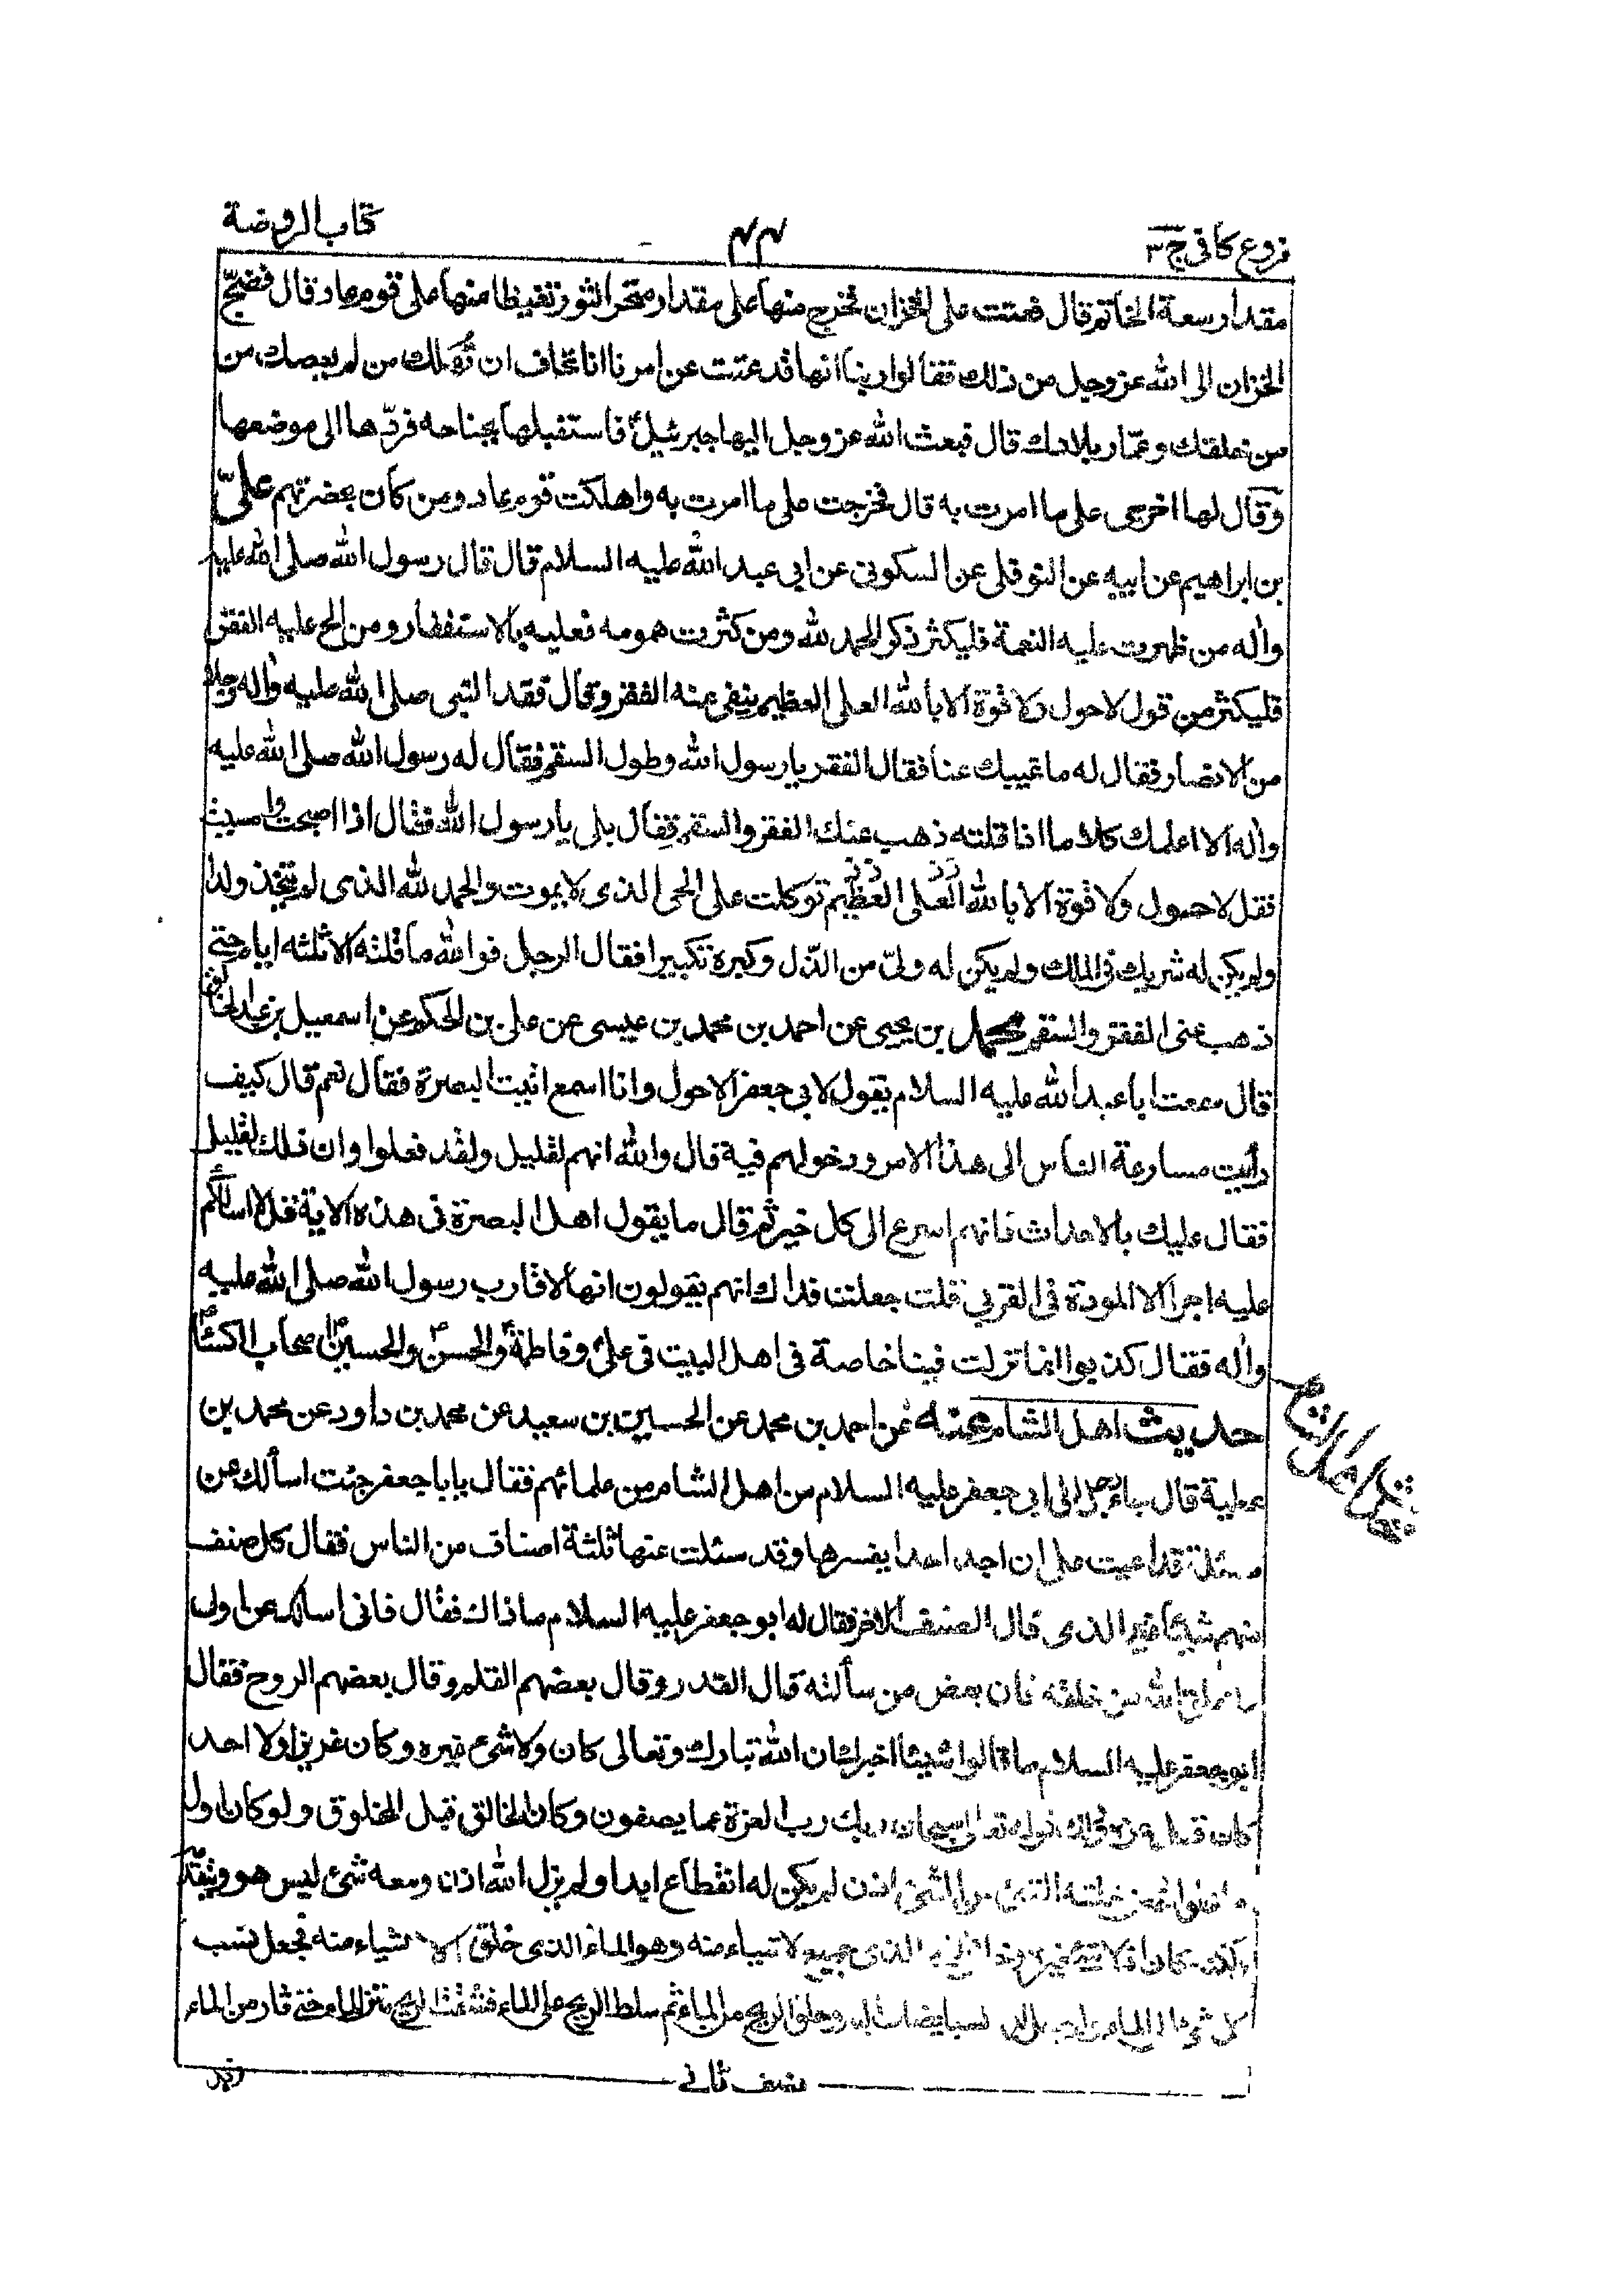 فروع كافی ج ۳
۴۴
كتاب الروضة
مقدار سعة الخاتم قال فعتت على الخزان فخرج منها على مقدار منخر الثور تغيظا منها على قوم عاد قال فضجّ
الخزان الى الله عز وجل من ذلك فقالوا ربنا انها قد عتت عن امرنا انا نخاف ان تُهلك من لم يعصك من
من خلقك وعمّار بلادك قال فبعث الله عز وجل اليها جبرئيل فاستقبلها بجناحه فردّها الى موضعها
وقال لها اخرجى على ما امرت به قال فخرجت على ما امرت به واهلكت قوم عاد ومن كان بحضرتهم علىّ
بن ابراهيم عن ابيه عن النوفلى عن السكونى عن ابى عبد الله عليه السلام قال قال رسول الله صلى الله عليه
واله من ظهرت عليه النعمة فليكثر ذكر الحمد لله ومن كثرت همومه فعليه بالاستغفار ومن الح عليه الفقر
فليكثر من قول لاحول ولا قوة الا بالله العلى العظيم ينفى عنه الفقر وقال فقد النبى صلى الله عليه واله رجلا
من الانصار فقال له ما غيبك عنا فقال الفقر يا رسول الله وطول السقم فقال له رسول الله صلى الله عليه
واله الا اعلمك كلاما اذا قلته ذهب عنك الفقر والسقم فقال بلى يا رسول الله فقال اذا اصبحت وامسيت
فقل لاحول ولا قوة الا بالله العلى العظيم توكلت على الحى الذى لا يموت والحمد لله الذى لم يتخذ ولدا
ولم يكن له شريك فى الملك ولم يكن له ولىّ من الذّل وكبره تكبيرا فقال الرجل فوالله ما قلته الا ثلثه ايام حتى
ذهب عنى الفقر والسقم محمد بن يحيى عن احمد بن محمد بن عيسى عن على بن الحكم عن اسمعيل بن عبد الخالق
قال سمعت ابا عبد الله عليه السلام يقول لابى جعفر الاحول وانا اسمع اتيت البصرة فقال نعم قال كيف
رأيت مسارعة الناس الى هذا الامر ودخولهم فيه قال والله انهم لقليل ولقد فعلوا وان ذلك لقليل
فقال عليك بالاحداث فانهم اسرع الى كل خير ثم قال ما يقول اهل البصرة فى هذه الاية قل لا اسألكم
عليه اجرا الا المودة فى القربى قلت جعلت فداك انهم يقولون انها لاقارب رسول الله صلى الله عليه
واله فقال كذبوا انما نزلت فينا خاصة فى اهل البيت فى علىّ وفاطمة والحسن والحسين اصحاب الكساء
حديث اهل الشام عنه عن احمد بن محمد عن الحسين بن سعيد عن محمد بن داود عن محمد بن
عطية قال جاء رجل الى ابى جعفر عليه السلام من اهل الشام من علمائهم فقال يابا جعفر جئت اسألك عن
مسئلة قد اعيت على ان اجد احدا يفسرها وقد سئلت عنها ثلثة اصناف من الناس فقال كل صنف
منهم شيئا غير الذى قال الصنف الاخر فقال له ابو جعفر عليه السلام ما ذاك فقال فانى اسألك عن اول
ما خلق الله من خلقه فان بعض من سألته قال القدر وقال بعضهم القلم وقال بعضهم الروح فقال
ابو جعفر عليه السلام ما قالوا شيئا اخبرك ان الله تبارك وتعالى كان ولا شئ غيره وكان عزيزا ولا احد
كان قبل عزه وذلك قوله تعالى سبحان ربك رب العزة عما يصفون وكان الخالق قبل المخلوق ولو كان اول
ما خلق من خلقه الشئ من الشئ اذن لم يكن له انقطاع ابدا ولم يزل الله اذن ومعه شئ ليس هو يتقدمه
ولكنه كان اذ لا شئ غيره وخلق الذى جميع الاشياء منه وهو الماء الذى خلق الاشياء منه فجعل نسب
كل شئ الى الماء ولم يجعل للماء نسبا يضاف اليه وخلق الريح من الماء ثم سلط الريح على الماء فشققت الريح متن الماء حتى ثار من الماء
نصف ثانی
زبد
حديث اهل الشام